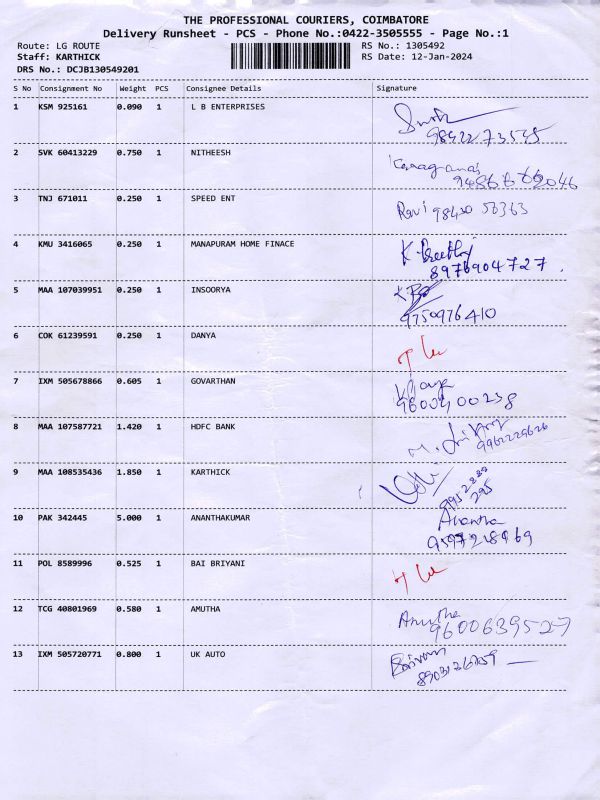 THE PROFESSIONAL COURIERS, COIMBATORE
Delivery Runsheet - PCS - Phone No.:0422-3505555 - Page No.:1
Route: LG ROUTE RS No.: 1305492
Staff: KARTHICK RS Date: 12-Jan-2024
DRS No.: DCJB130549201
S No Consignment No Weight PCS Consignee Details Signature
1 KSM 925161 0.090 1 L B ENTERPRISES
2 SVK 60413229 0.750 1 NITHEESH
3 TNJ 671011 0.250 1 SPEED ENT Ravi
4 KMU 3416065 0.250 1 MANAPURAM HOME FINACE
8976904727
5 MAA 107039951 0.250 1 INSOORYA
9750976410
6 COK 61239591 0.250 1 DANYA
7 IXM 505678866 0.605 1 GOVARTHAN
8 MAA 107587721 1.420 1 HDFC BANK
9 MAA 108535436 1.850 1 KARTHICK
10 PAK 342445 5.000 1 ANANTHAKUMAR Anantha
11 POL 8589996 0.525 1 BAI BRIYANI
12 TCG 40801969 0.580 1 AMUTHA Amutha
9600639527
13 IXM 505720771 0.800 1 UK AUTO